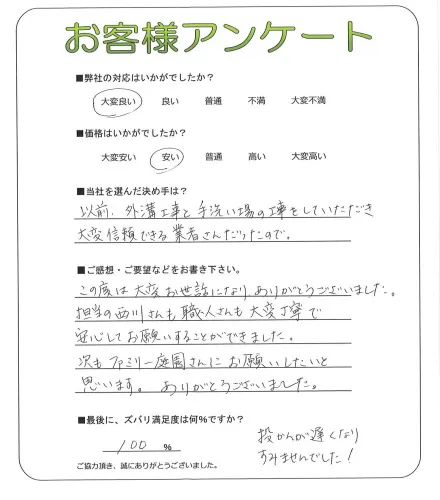 お客様アンケート
■弊社の対応はいかがでしたか?
大変良い 良い 普通 不満 大変不満
■価格はいかがでしたか?
大変安い 安い 普通 高い 大変高い
■当社を選んだ決め手は?
以前、外溝工事と手洗い場の工事をしていただき
大変信頼できる業者さんだったので。
■ご感想・ご要望などをお書き下さい。
この度は大変お世話になり、ありがとうございました。
担当の西川さんも職人さんも大変丁寧で
安心してお願いすることができました。
次もファミリー庭園さんにお願いしたいと
思います。ありがとうございました。
■最後に、ズバリ満足度は何%ですか?
100 %
投かんが遅くなり
すみませんでした!
ご協力頂き、誠にありがとうございました。